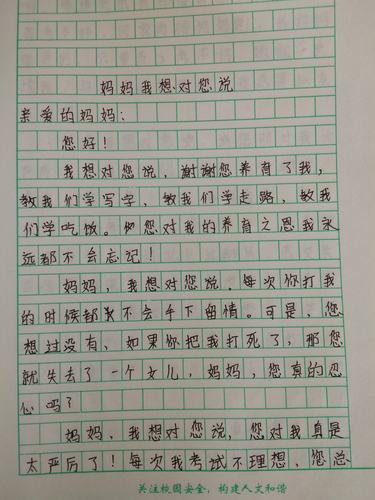 妈妈我想对您说
亲爱的妈妈：
您好！
我想对您说，谢谢您养育了我，
教我们学写字，教我们学走路，教我
们学吃饭。您对我的养育之恩我永
远都不会忘记！
妈妈，我想对您说，每次你打我
的时候都不会手下留情。可是，您
想过没有，如果你把我打死了，那您
就失去了一个女儿，妈妈，您真的忍
心吗？
妈妈，我想对您说，您对我真是
太严厉了！每次我考试不理想，您总
关注校园安全，构建人文和谐